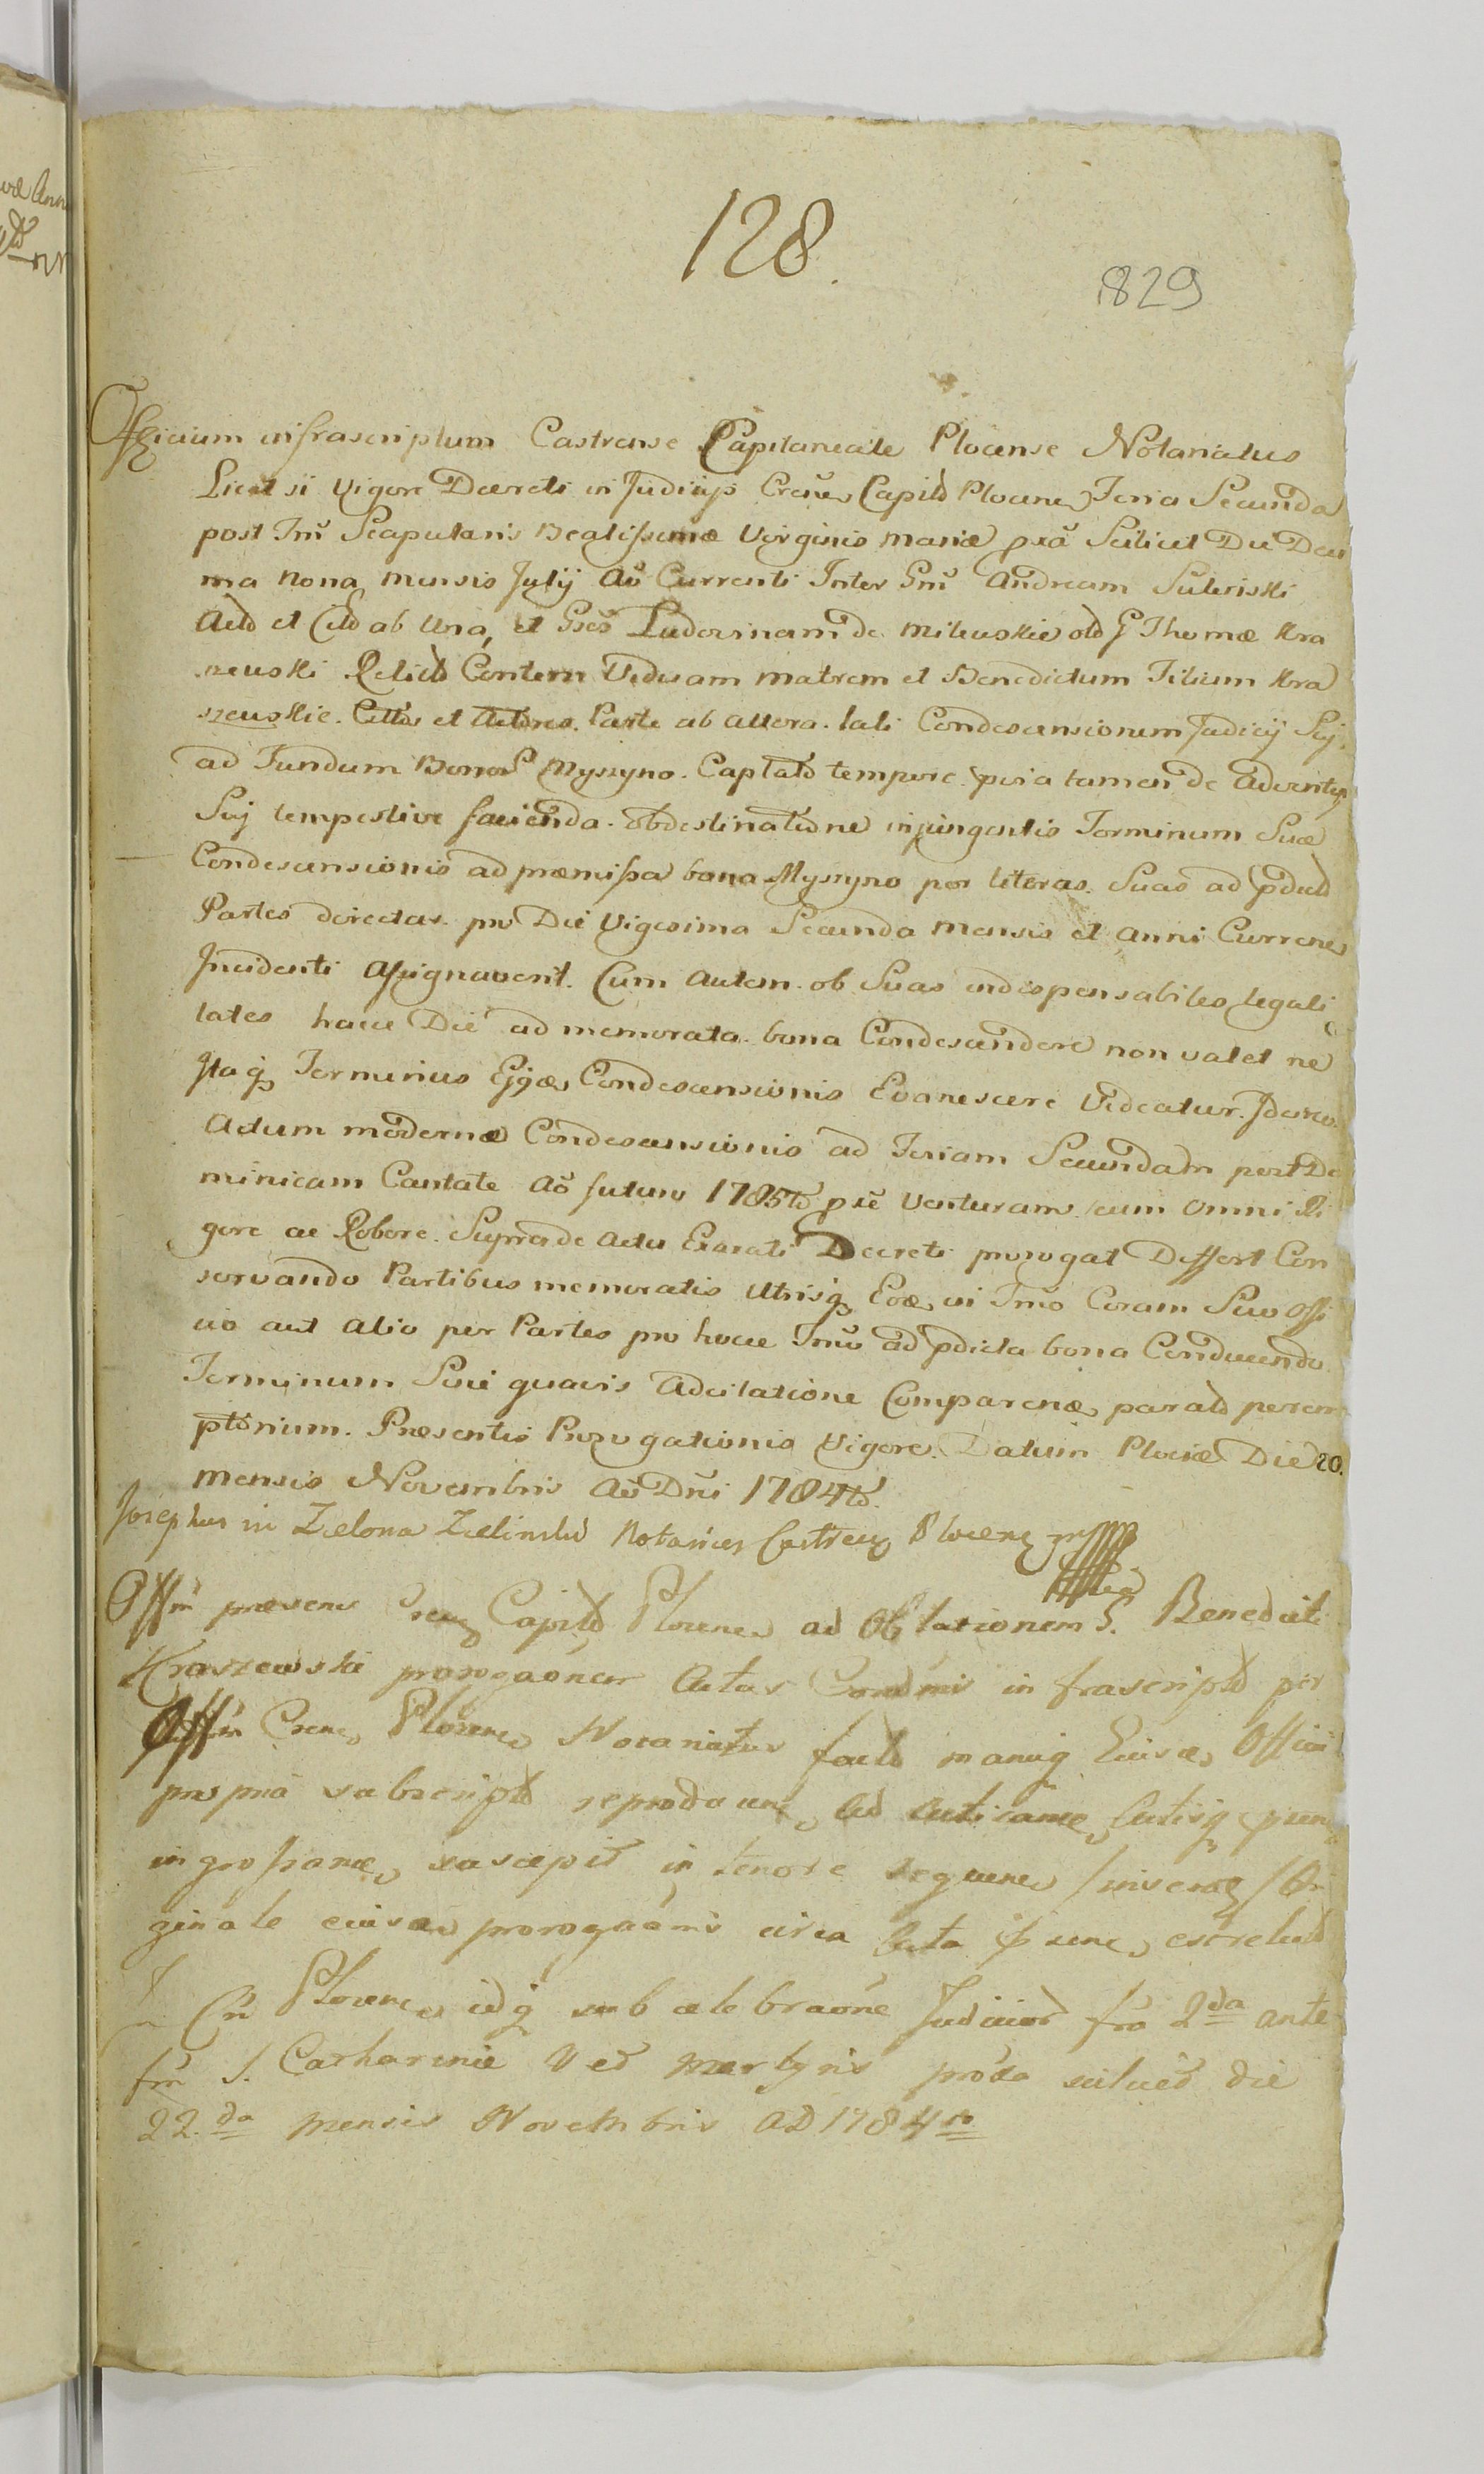 128.
829
Officium infrascriptum Castrense Capitaneale Plocense Notariatus
Licet si Vigore Decreti in Judicijs Crens Capitd Plocens Feria Secunda
post Fm̃ Scapularis Beatissimæ Virginis Mariæ pxã Scilicet Die Deci
ma Nona Mensis Julij Aõ Currenti Inter Gm̃ Andream
Actd et Citd ab Una, et Gsos de Milewskie old G Thomæ Kra
szewski Relictd Viduam Matrem et Benedictum Filium Kra
szewskie. Cittos et Actores. Parte ab altera. lati Condescensionem Judicij Sui
ad Fundum Bonor Myszyno. Captatd tempore. tamen de Adventu
Suj tempestive facienda. obdestinatione injungentis Terminum Suæ
Condescensionis ad præmissa bona Myszyno per literas. Suas ad pdictd
Partes directas. pro Die Vigesima Secunda Mensis et anni Currens
Incidenti Assignaverit. Cum Autem. ob Suas indispensabiles legali
tates hacce Die ad memorata. bona Condescendere non valet ne
Itaq Terminus Condescensionis Evanescere Videatur. Idcirco
Actum modernæ Condescensionis ad Feriam Secundam post Do
minicam Cantate Aõ futuro 1785to pxẽ Venturam cum Omni Ri
gore ac Robore. Suprade Actu Exarati Decreti prorogat Differt Con
servando Partibus memoratis Utrisq in Tmõ Coram Suo Offi
cio aut alio per Partes pro hocce Tmõ ad pdicta bona Conducendo.
Terminum Sine quavis Adcitatione paratd perem
ptorium. Præsentis Prorogationis Vigore. Datum Plociæ Die 20.
Mensis Novembris Aõ Dñi 1784to.
Josephus in Zielona Zielinski Notarius Castren Plocens
Offm̃ præsens Capitd Plocens ad Oblationem G. Benedicti
Kraszewski prorogaõnem Actus infrascriptd per
Offm̃ Crens Plocens Notariatus factd manuq Officii
propria subscriptd ad Acticand Actisq
ingrossand suscepit in tenore sequens Or
ginale prorogaõnis circa Acta
Plocens idq sub celebraõne Judicior fra 2da ante
fm̃ S. Catharinæ V et Martyris proxa scilicet die
22da Mensis Novembris AD 1784to